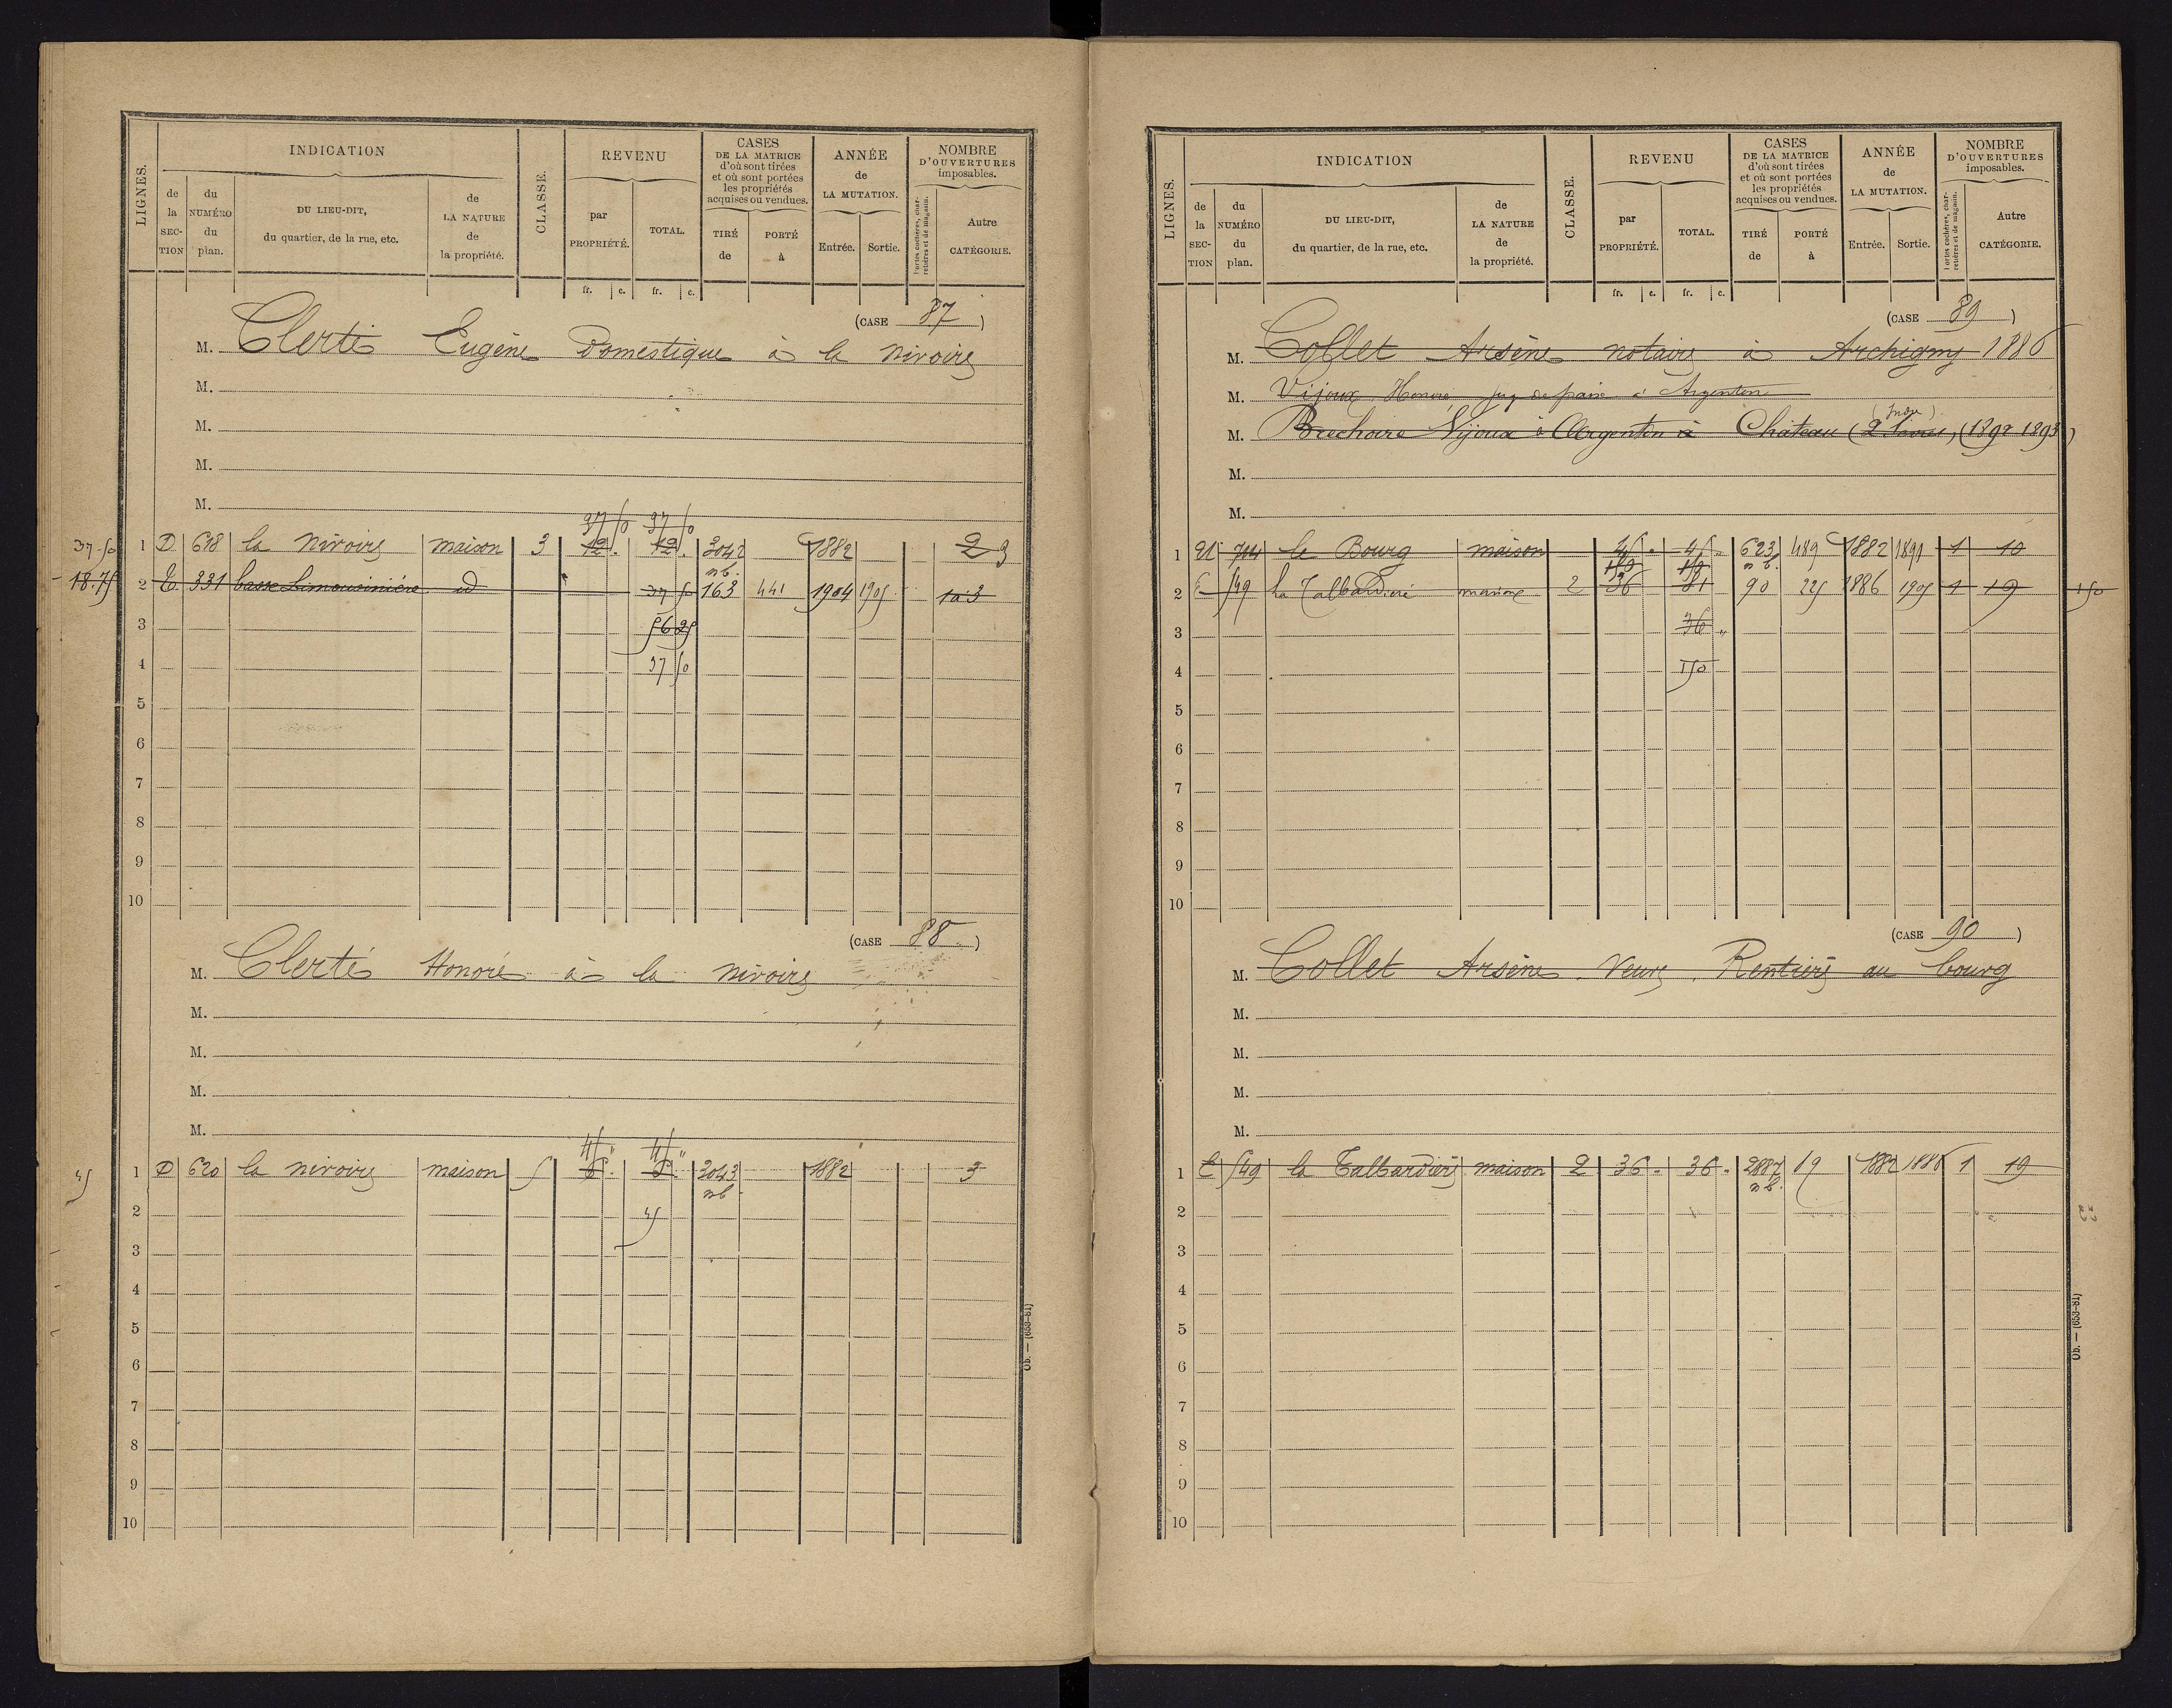 LIGNES.
INDICATION
de la SECTION
du NUMÉRO du plan.
DU LIEU-DIT, du quartier, de la rue, etc.
de LA NATURE de la propriété.
CLASSE.
REVENU
par PROPRIÉTÉ.
TOTAL.
CASES DE LA MATRICE d'où sont tirées et où sont portées les propriétés acquises ou vendues.
TIRÉ de
PORTÉ à
ANNÉE de LA MUTATION.
Entrée.
Sortie.
NOMBRE D'OUVERTURES imposables.
Portes cochères, charretières et de magasin.
Autre CATÉGORIE.
fr. c. fr. c.
(CASE 87)
M. Clerté Eugène Domestique à la nivoire
M.
M.
M.
M.
37 50 37 50
37.50 1 D 618 la Nivoire maison 3 12. 12. 3042 nb. 1882 2 3
18.75 2 E 331 basse Limousinière id 37 50 163 441 1904 1905 3
3 56 25
4 37 50
5
6
7
8
9
10
(CASE 88)
M. Clerté Honoré à la nivoire
M.
M.
M.
M.
45 " 45 "
45 1 D 620 la nivoire maison 5 6. 6. 3043 nb 1882 3
2 45
3
4
5
6
7
8
9
10
Ob. — (653-81)
LIGNES.
INDICATION
de la SECTION
du NUMÉRO du plan.
DU LIEU-DIT, du quartier, de la rue, etc.
de LA NATURE de la propriété.
CLASSE.
REVENU
par PROPRIÉTÉ.
TOTAL.
CASES DE LA MATRICE d'où sont tirées et où sont portées les propriétés acquises ou vendues.
TIRÉ de
PORTÉ à
ANNÉE de LA MUTATION.
Entrée.
Sortie.
NOMBRE D'OUVERTURES imposables.
Portes cochères, charretières et de magasin.
Autre CATÉGORIE.
fr. c. fr. c.
(CASE 89)
M. Collet Arsène notaire à Archigny 1886
M. Vijoux Honoré juge de paix à Argenton
(Indre)
M. Brechoire Vijoux à Argenton Château (1892 1893)
M.
M.
1 744 le Bourg maison 45. 45. 623 nb. 489 1882 1891 1 10
150 150
2 E 549 la Talbardière maison 2 36 81 90 225 1886 1905 1 19 150
3 36 "
4 150
5
6
7
8
9
10
(CASE 90)
M. Collet Arsène Veuve Rentière au bourg
M.
M.
M.
M.
1 E 549 la Talbardière maison 2 36. 36. 2887 nb. 89 1882 1886 1 19
2
3
4
5
6
7
8
9
10
Ob. — (653-81)